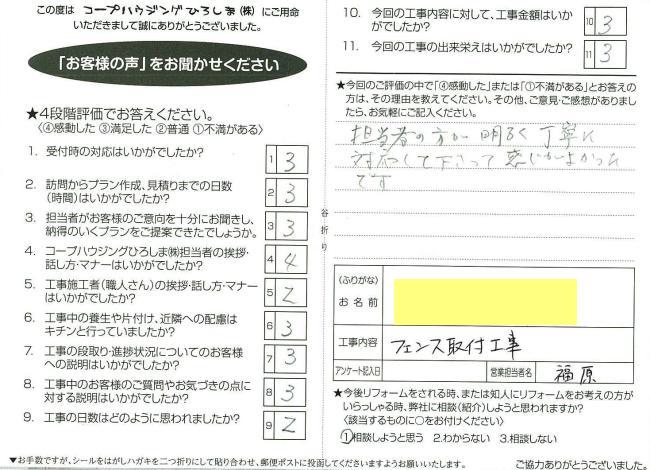 この度は コープハウジングひろしま(株) にご用命
いただきまして誠にありがとうございました。
「お客様の声」をお聞かせください
★4段階評価でお答えください。
〈④感動した ③満足した ②普通 ①不満がある〉
1. 受付時の対応はいかがでしたか? 1 3
2. 訪問からプラン作成、見積りまでの日数
(時間)はいかがでしたか? 2 3
3. 担当者がお客様のご意向を十分にお聞きし、
納得のいくプランをご提案できたでしょうか。 3 3
4. コープハウジングひろしま㈱担当者の挨拶・
話し方・マナーはいかがでしたか? 4 4
5. 工事施工者(職人さん)の挨拶・話し方・マナー
はいかがでしたか? 5 2
6. 工事中の養生や片付け、近隣への配慮は
キチンと行っていましたか? 6 3
7. 工事の段取り・進捗状況についてのお客様
への説明はいかがでしたか? 7 3
8. 工事中のお客様のご質問やお気づきの点に
対する説明はいかがでしたか? 8 3
9. 工事の日数はどのように思われましたか? 9 2
▼お手数ですが、シールをはがしハガキを二つ折りにして貼り合わせ、郵便ポストに投函してくださいますようお願いいたします。
10. 今回の工事内容に対して、工事金額はいか
がでしたか? 10 3
11. 今回の工事の出来栄えはいかがでしたか? 11 3
★今回のご評価の中で「④感動した」または「①不満がある」とお答え
の方は、その理由を教えてください。その他、ご意見・ご感想がありまし
たら、お気軽にご記入ください。
担当者の方が明るく丁寧に
対応して下さって感じがよかった
です
谷
折
り
(ふりがな)
お名前
工事内容 フェンス取付工事
アンケート記入日 営業担当者名 福原
★今後リフォームをされる時、または知人にリフォームをお考えの方が
いらっしゃる時、弊社に相談(紹介)しようと思われますか?
〈該当するものに○をお付けください〉
1.相談しようと思う 2.わからない 3.相談しない
ご協力ありがとうございました。